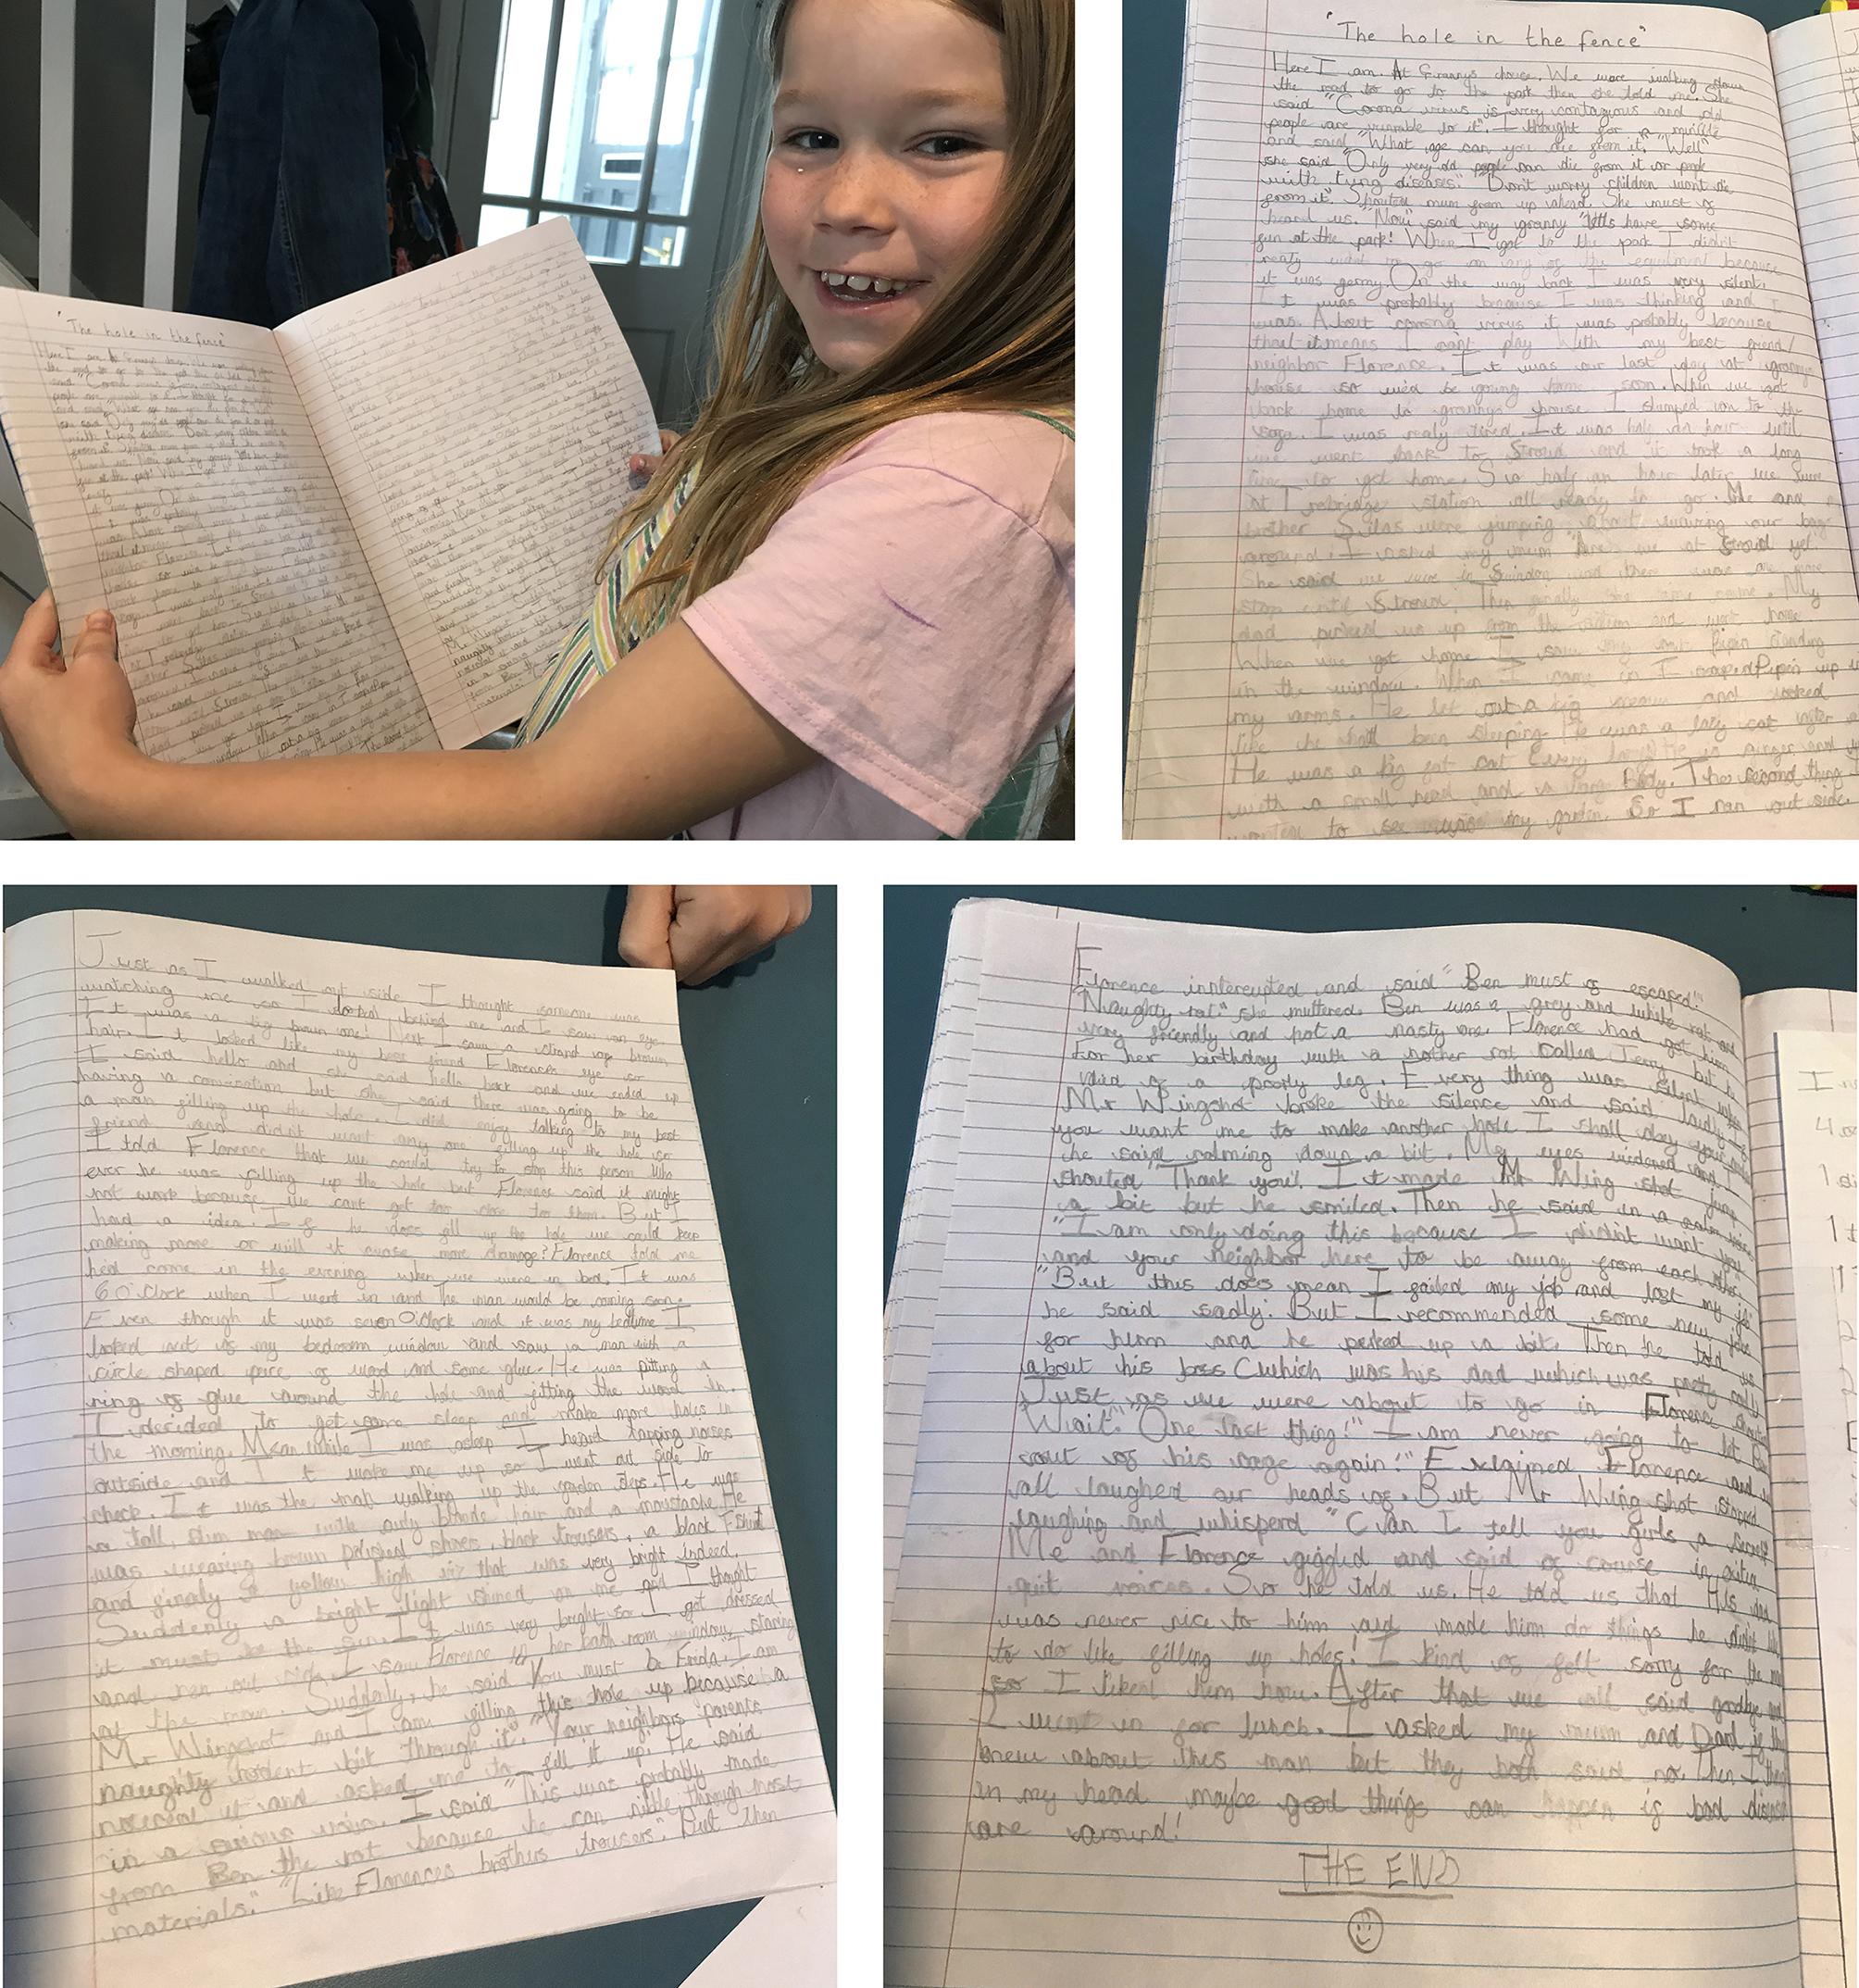 "The hole in the fence"
Here I am. At Grannys house. We were walking down
the road to go to the park then she told me. She
said "Corona virus is very contagious and old
people are vunrable to it". I thought for a
and said "What age can you die from it." "Well"
she said "Only very old people can die from it or people
with lung diseases." "Don't worry children wont die
from it". Shouted mum from up ahead. She must of
heard us. "Now" said my granny "lets have some
fun at the park! When I got to the park I didn't
realy want to go on any of the equipment because
it was germy. On the way back I was very silent.
It was probably because I was thinking and I
was. About corona virus it was probably because
that it means I cant play with my best friend/
neighbor Florence. It was our last day at grannys
house so we'd be going home soon. When we got
back home to grannys house I slumped on to the
sofa. I was realy tired. It was half an hour until
we went back to Stroud and it took a long
time to get home. So half an hour later we were
at station all ready to go. Me and
brother Silas were jumping about our bags
around. I asked my mum "Are we at Stroud yet
She said we were in Swindon and there was one more
stop until Stroud. Then finaly the time came. My
dad picked us up from the and went home
When we got home I saw my cat Pipin standing
in the window. When I came in I Pipin up in
my arms. He let out a big meow and looked
like he had been sleeping. He was a lazy cat
He was a big fat cat He is ginger and
with a small head and a large body. The second thing I
wanted to see was my garden. So I ran out side.
Just as I walked out side I thought someone was
watching me so I looked behind me and I saw an eye.
It was a big brown one! Next I saw a strand of brown
hair. It looked like my best friend Florences eye so
I said hello and she said hello back and we ended up
having a conversation but she said there was going to be
a man filling up the hole. I did enjoy talking to my best
friend and didn't want any one filling up the hole so
I told Florence that we could try to stop this person who
ever he was filling up the hole but Florence said it might
not work because we cant get too close to them. But I
had a idea. If he does fill up the hole we could keep
making more or will it cause more damage? Florence told me
hed come in the evening when we were in bed. It was
6 O'Clock when I went in and the man would be coming soon
Even though it was seven O'Clock and it was my bedtime I
looked out of my bedroom window and saw a man with a
circle shaped peice of wood and some glue. He was putting a
ring of glue around the hole and fitting the wood in.
I decided to get some sleep and make more holes in
the morning. Mean while I was asleep I heard tapping noises
outside and it woke me up so I went out side to
check. It was the man walking up the garden steps. He was
a tall, slim man with curly blonde hair and a moustache. He
was wearing brown polished shoes, black trousers, a black T shirt
and finaly a yellow high viz that was very bright indeed.
Suddenly a bright light shined on me and I thought
it must be the sun. It was very bright so I got dressed
and ran out side. I saw Florence in her bath room window, staring
at the man. Suddaly, he said "You must be Frida." I am
Mr Wingshot and I am filling this hole up because a
naughty rodent bit through it". "Your neighbors parents
noticed it and asked me to fill it up". He said
in a voice. I said "This was probably made
from Ben the rat because he can nible through most
materials." "Like Florences brothers trousers". But then
Florence interrupted and said "Ben must of escaped."
"Naughty rat" she muttered. Ben was a grey and white rat and
very friendly and not a nasty one. Florence had got him
For her birthday with a nother rat called Jerry but he
died of a poorly leg. Every thing was silent until
Mr Wingshot broke the silence and said loudly "If
you want me to make another hole I shall
he said calming down a bit. My eyes widened and I
shouted "Thank you". It made Mr Wing shot jump
a bit but he smiled. Then he said in a calm
"I am only doing this because I didn't want you
and your neighbor here to be away from each other"
"But this does mean I failed my job and lost my job"
he said sadly. But I recommended some new jobs
for him and he perked up a bit. Then he told us
about his boss (which was his dad which was pretty
Just as we were about to go in Florence shouted
"Wait". "One last thing!" "I am never going to let Ben
out of his cage again!" Exlaimed Florence and we
all laughed our heads of. But Mr Wing shot stopped
laughing and whisperd "Can I tell you girls a secret
Me and Florence giggled and said of course in
quit voices. So he told us. He told us that His dad
was never nice to him and made him do things he didnt like
to do like filling up holes! I kind of felt sorry for the man
so I liked him now. After that we all said goodbye and
I went in for lunch. I asked my mum and Dad if they
knew about this man but they both said no. Then I
in my head maybe good things can happen if bad
are around!
THE END